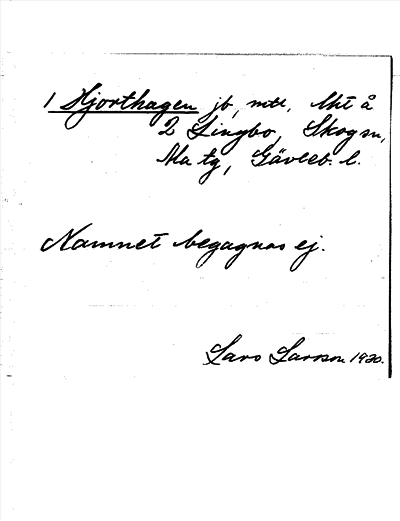 1 Hjorthagen jb, mtl, Mt å
2 Lingbo, Skogsn,
Ma tg, Gävleb. l.
Namnet begagnas ej.
Lars Larsson 1930.